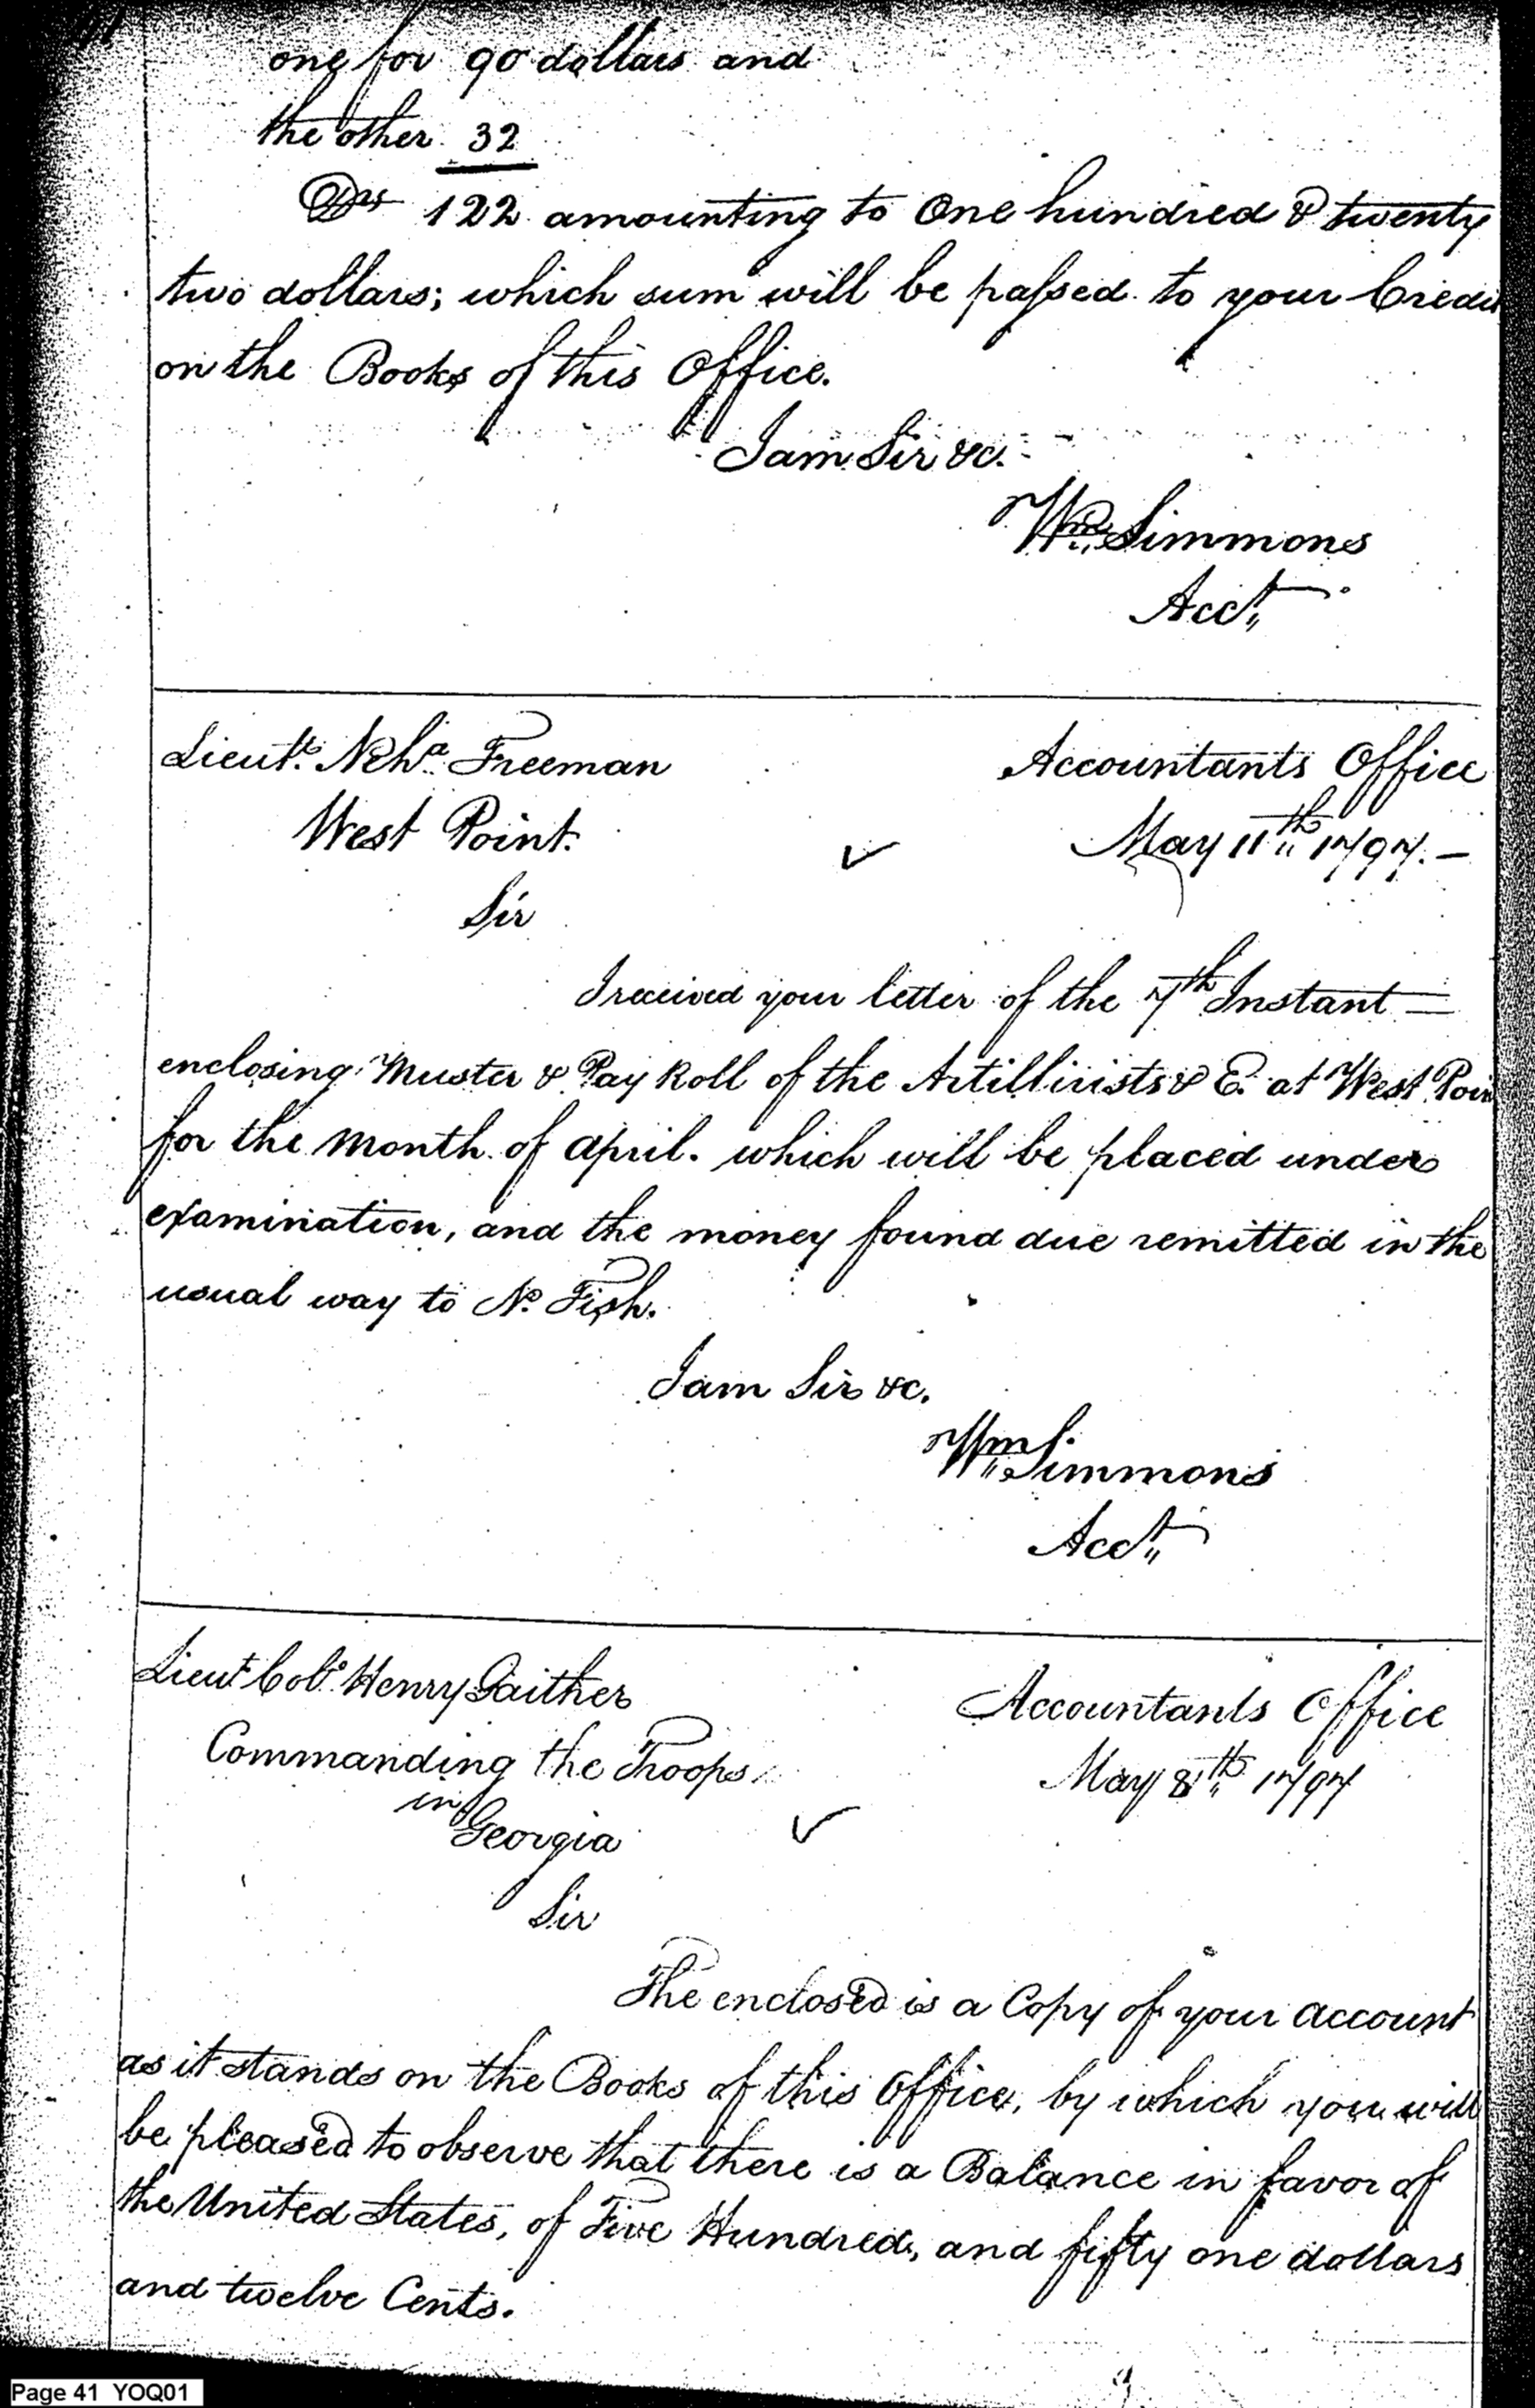 41
one for 90 dollars and
the other 32
Drs 122 amounting to One hundred & twenty
two dollars; which sum will be passed to your Credit
on the Books of this Office.
I am Sir &c.
Wm. Simmons
Acct.
Lieut. Neha. Freeman
Accountants Office
West Point.
May 11th 1797. —
Sir
I received your letter of the 7th Instant
enclosing Muster & Pay Roll of the Artillirists & E. at West Poin
for the month of April. which will be placed under
examination, and the money found due remitted in the
usual way to No. Fish.
I am Sir &c.
Wm. Simmons
Acct.
Lieut. Colo. Henry Gaither
Accountants Office
Commanding the Troops
May 8th 1797
in
Georgia
Sir
The enclosed is a Copy of your account
as it stands on the Books of this Office, by which you will
be pleased to observe that there is a Balance in favor of
the United States, of Five Hundred, and fifty one dollars
and twelve Cents.
Page 41 YOQ01